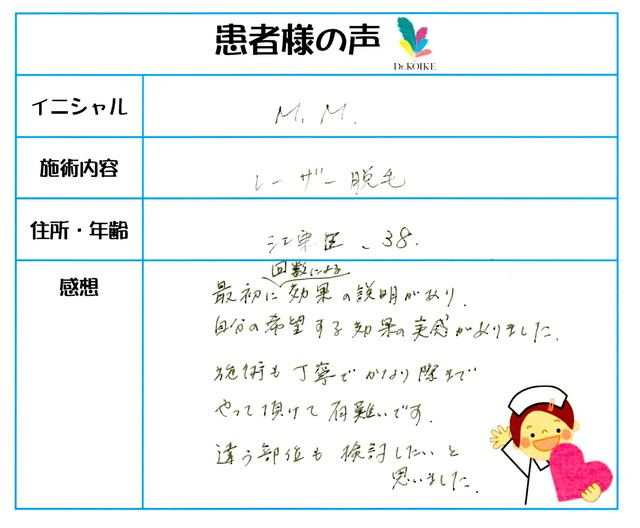 患者様の声
Dr.KOIKE
イニシャル
M. M.
施術内容
レーザー脱毛
住所・年齢
江東区、38.
感想
回数による
最初に効果の説明があり、
自分の希望する効果の実感がありました。
施術も丁寧でかなり際まで
やって頂けて有難いです。
違う部位も検討したいと
思いました。